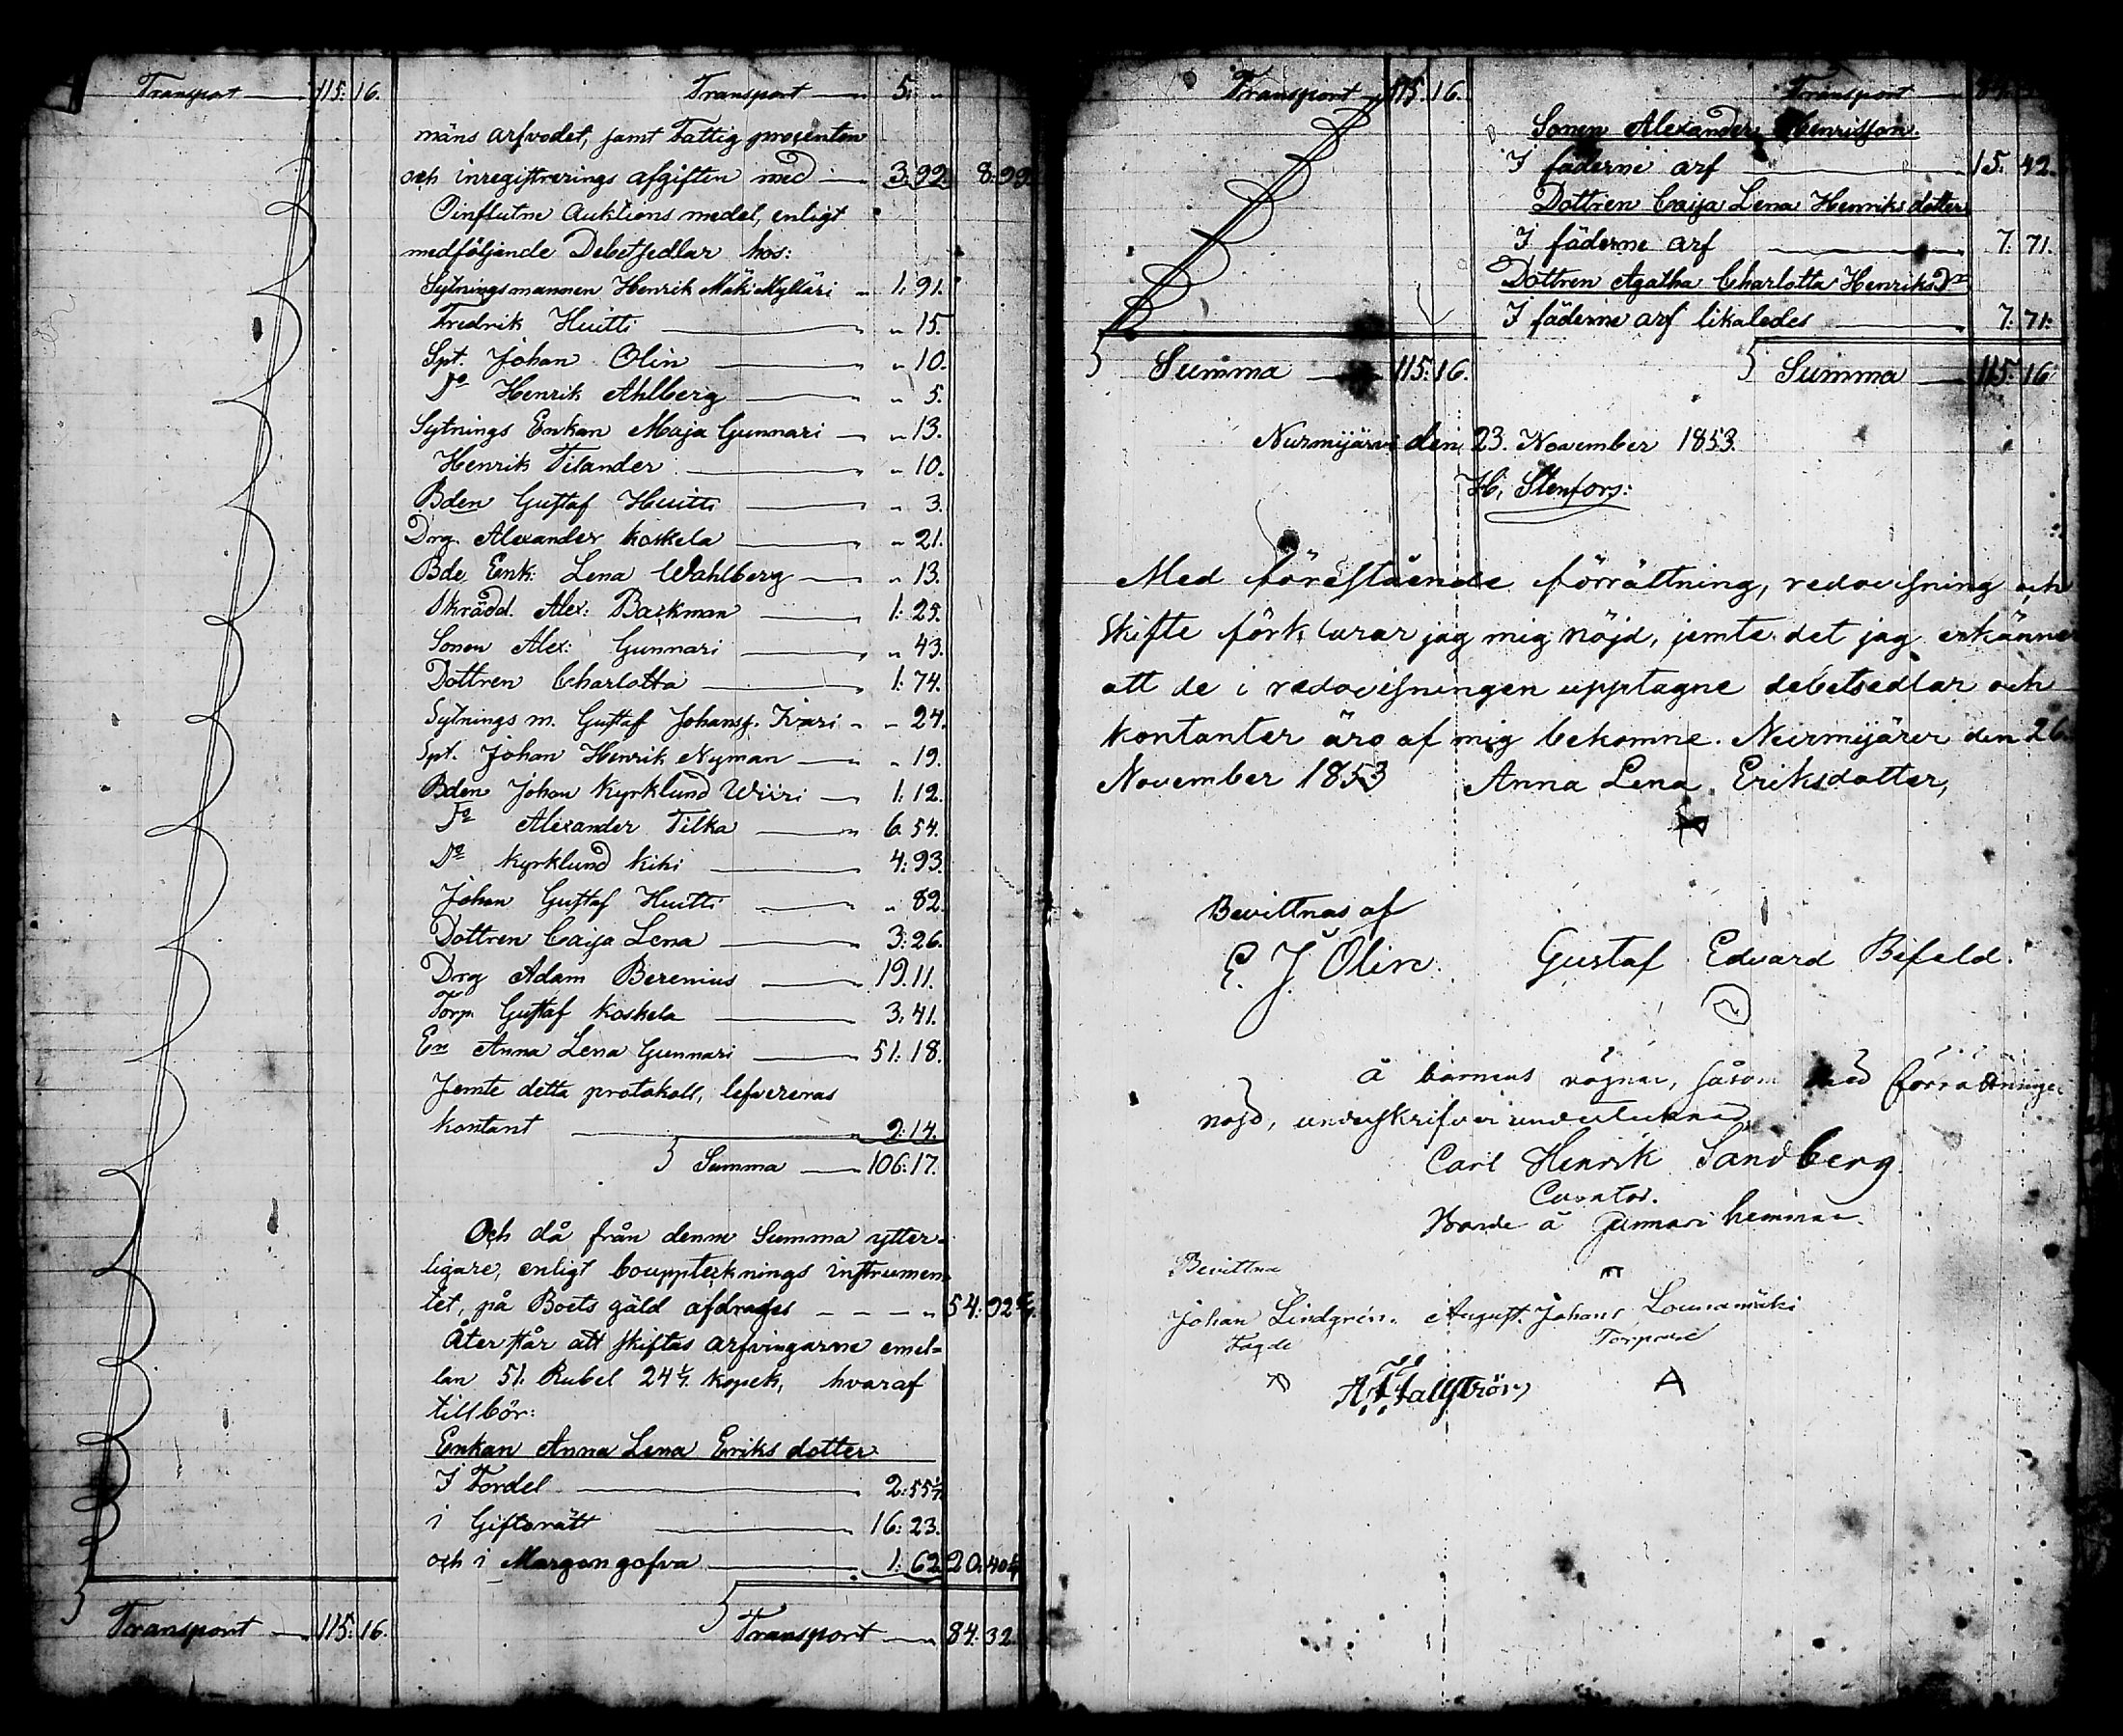 Transport — 115: 16.
Transport — 5: „
mäns arfvodet, samt Fattig procenten
och inregistrerings afgiften med — 3: 99. 8: 99.
Oinflutne Auktions medel, enligt
medföljande Debetsedlar hos:
Sytningsmannen Henrik Mäki Mylläri „ 1: 91.
Fredrik Huitti — „ 15.
Spt. Johan Olin — „ 10.
Do Henrik Ahlberg — „ 5.
Sytnings Enkan Maja Gunnari — „ 13.
Henrik Tilander — „ 10.
Bden Gustaf Huitti — „ 3.
Drg. Alexander Koskela — „ 21.
Bde Enk: Lena Wahlberg — „ 13.
Skrädd. Alex: Backman — 1: 25.
Sonen Alex: Gunnari — „ 43.
Dottren Charlotta — 1: 74.
Sytnings m. Gustaf Johanss. Ivari „ „ 24.
Spt. Johan Henrik Nyman — „ 19.
Bden Johan Kyrklund Wiiri — 1: 12.
Do Alexander Tilka — 6. 54.
Do Kyrklund Kiki — 4: 93.
Johan Gustaf Huitti — „ 82.
Dottren Caija Lena — 3: 26.
Drg Adam Berenius — 19. 11.
Torp. Gustaf Koskela — 3. 41.
En Anna Lena Gunnari — 51: 18.
Jemte detta protokoll, lefvereras
kontant — 9: 14.
Summa — 106: 17.
Och då från denne Summa ytter-
ligare, enligt bouppteknings instrumen-
tet, på Boets gäld afdrages — — — „ 54: 92
Återstår att skiftas arfvingarne emel-
lan 51. Rubel 24 kopek, hvaraf
tillbör:
Enkan Anna Lena Eriks dotter
I Fordel — 2: 55
i Giftorätt — 16: 23.
och i Morgongofva — 1: 62. 20: 40
Transport — 115: 16.
Transport — 84: 32.
Transport — 115. 16.
Transport — 84:
Sonen Alexander Henriksson.
I fäderne arf — 15: 42.
Dottren Caija Lena Henriksdotter
I fäderne arf — 7: 71.
Dottren Agatha Charlotta Henriks Dr
I fäderne arf likaledes — 7: 71.
Summa — 115: 16.
Summa — 115: 16
Nurmijärvi den 23. November 1853.
H. Stenfors:
Med förestående förrättning, redovisning och
skifte förklarar jag mig nöjd, jemte det jag erkänner
att de i redovisningen upptagne debetsedlar och
kontanter äro af mig bekomne. Nurmijärvi den 26.
November 1853 Anna Lena Eriksdotter,
Bevittnas af
E. J. Olin. Gustaf Edvard Bifeld.
å barnens vägnar, såsom med förrättningen
nöjd, underskrifver undertecknad
Carl Henrik Sandberg
Curator.
Bonde å Gunnari hemman.
Bevittna
Johan Lindgrén. August Johans Lounamäki
Fogde Torpare
A Hallström